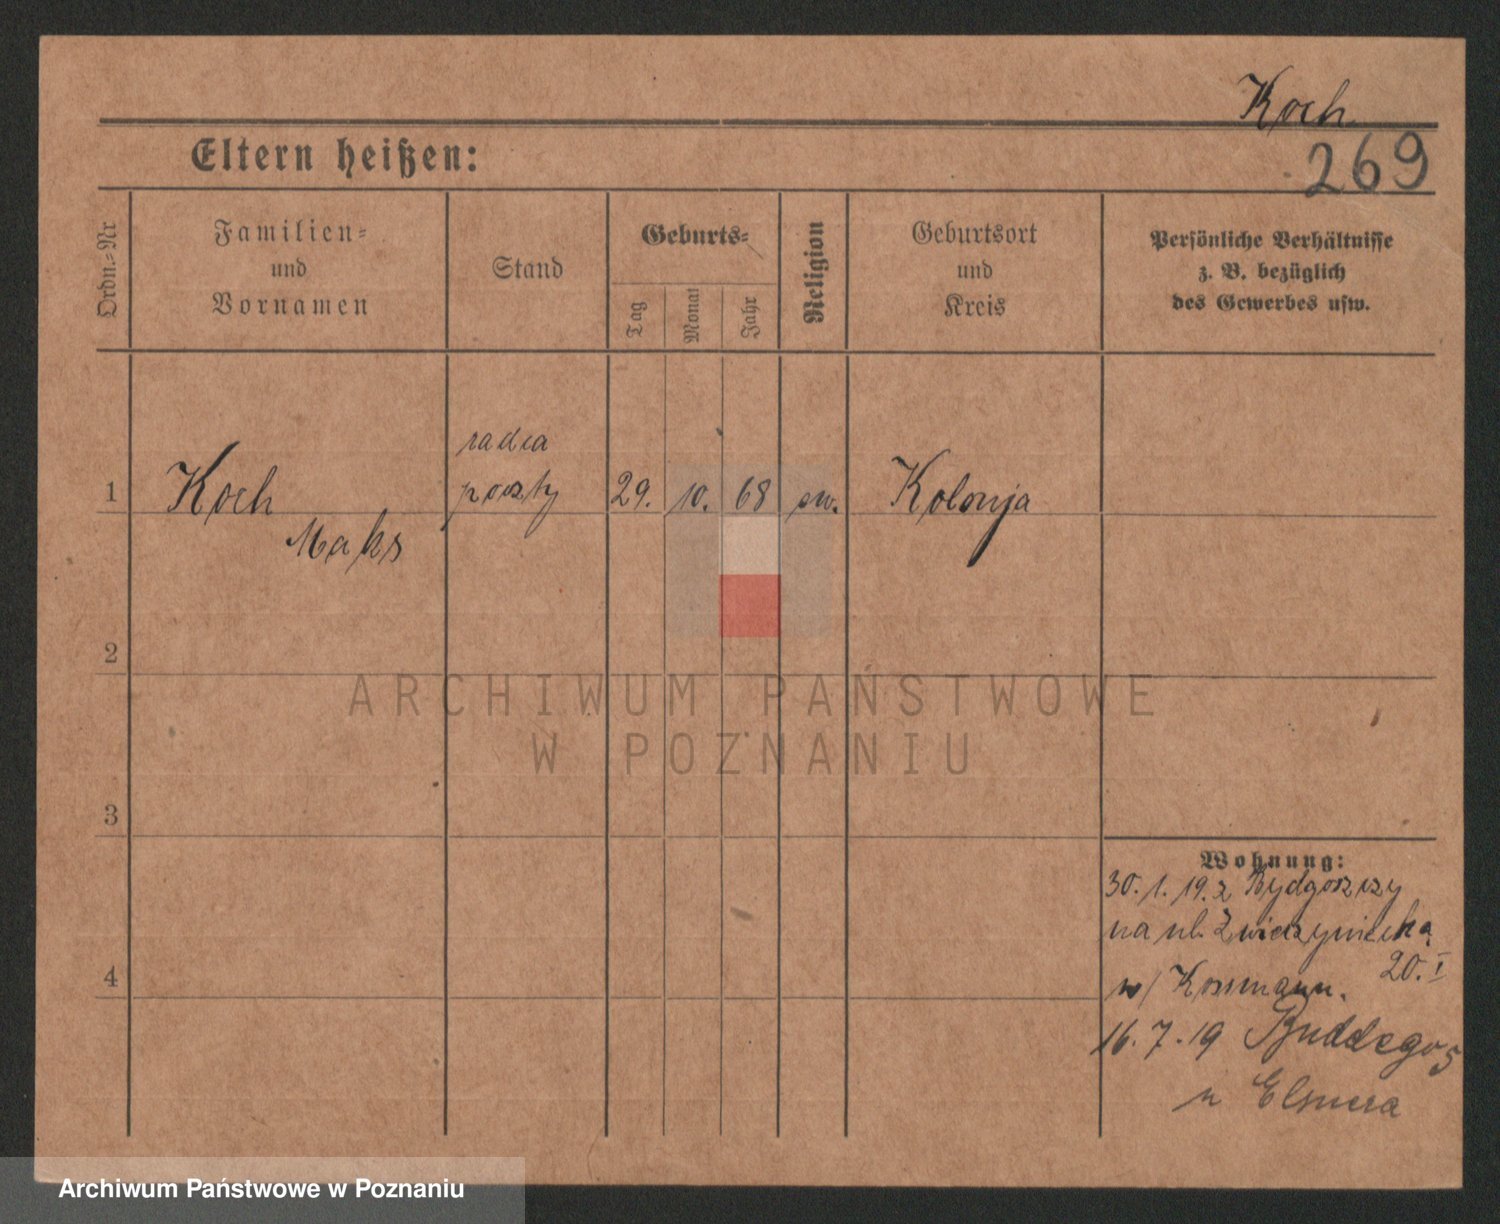 Koch
269
Eltern heißen:
Ordn.-Nr
Familien-
und
Vornamen
Stand
Geburts-
Tag
Monat
Jahr
Religion
Geburtsort
und
Kreis
Persönliche Verhältnisse
z. B. bezüglich
des Gewerbes usw.
radca
1 Koch poczty 29. 10. 68 ew. Kolonja
Maks
2
ARCHIWUM PAŃSTWOWE
W POZNANIU
3
Wohnung:
30. 1. 19. z Bydgoszczy
na ul. Zwierzyniecką
20. I
w/ Kossmann.
16. 7. 19 Buddego 5
u Elsnera
4
Archiwum Państwowe w Poznaniu